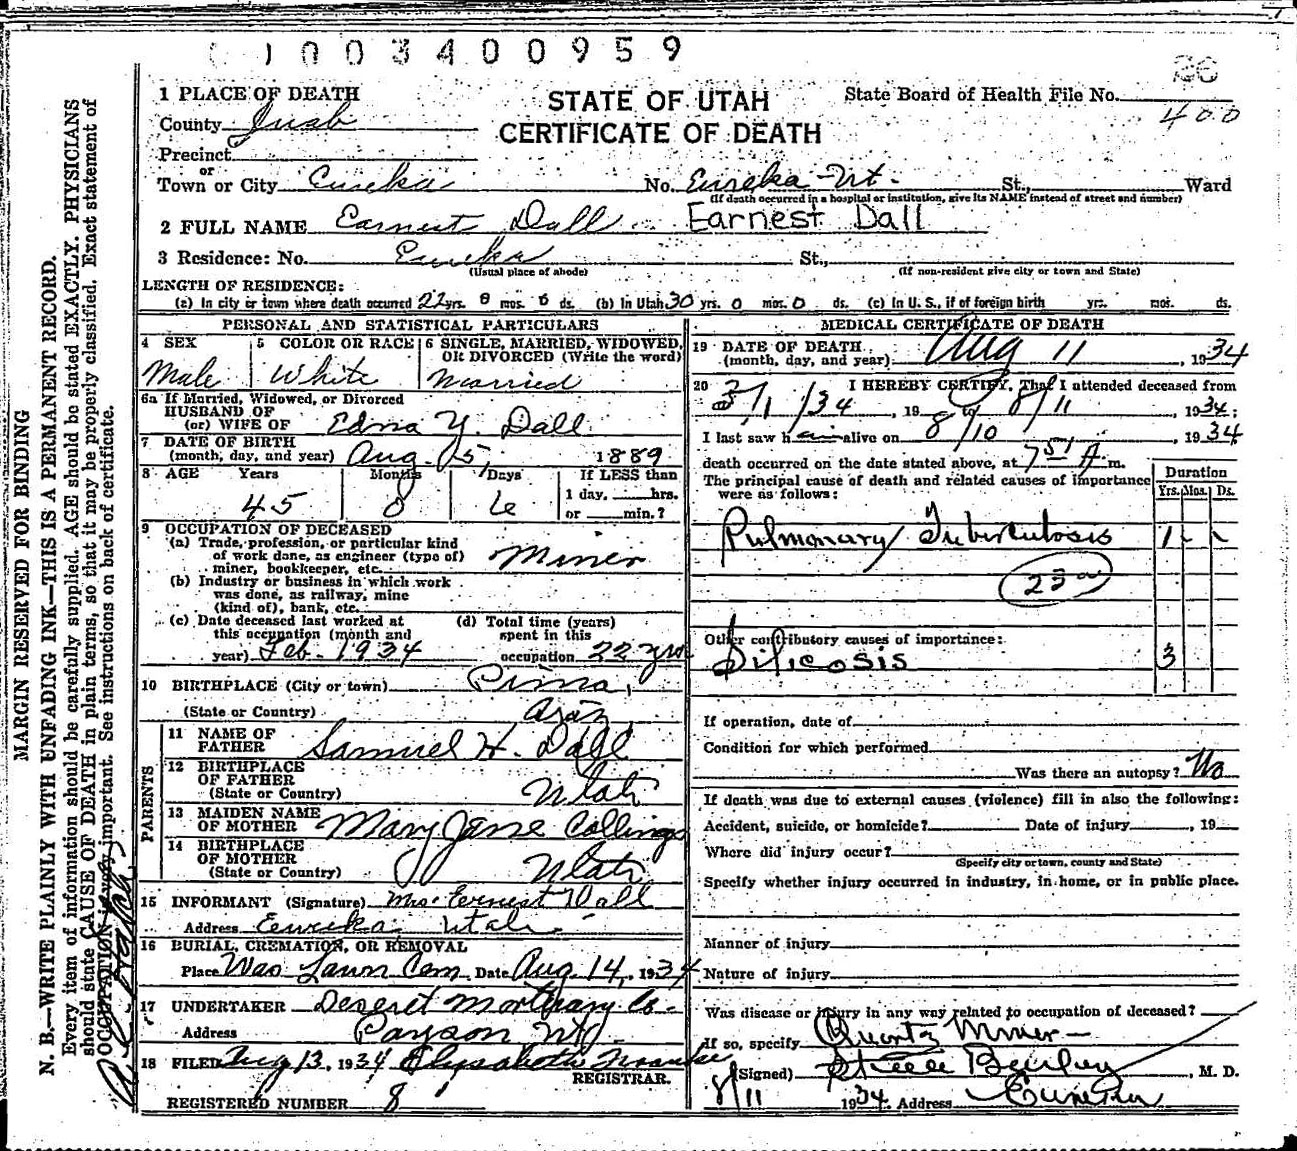 1003400959
26
1 PLACE OF DEATH
STATE OF UTAH
State Board of Health File No.
400
County Juab
CERTIFICATE OF DEATH
Precinct
or
Town or City Eureka No. Eureka Ut. St., Ward
(If death occurred in a hospital or institution, give its NAME instead of street and number)
2 FULL NAME Earnest Dall Earnest Dall
3 Residence: No. Eureka St.,
(Usual place of abode) (If non-resident give city or town and State)
LENGTH OF RESIDENCE:
(a) In city or town where death occurred 22 yrs. 8 mos. 6 ds. (b) In Utah 30 yrs. 0 mos. 0 ds. (c) In U. S., if of foreign birth yrs. mos. ds.
PERSONAL AND STATISTICAL PARTICULARS
4 SEX 5 COLOR OR RACE 6 SINGLE, MARRIED, WIDOWED, OR DIVORCED (Write the word)
Male White Married
6a If Married, Widowed, or Divorced
HUSBAND OF
(or) WIFE OF Edna Y. Dall
7 DATE OF BIRTH
(month, day, and year) Aug. 5, 1889
8 AGE Years Months Days If LESS than
1 day, hrs.
45 0 6 or min.?
9 OCCUPATION OF DECEASED
(a) Trade, profession, or particular kind
of work done, as engineer (type of)
miner, bookkeeper, etc. Miner
(b) Industry or business in which work
was done, as railway, mine
(kind of), bank, etc.
(c) Date deceased last worked at
this occupation (month and
year) Feb - 1934
(d) Total time (years)
spent in this
occupation 22 yrs
10 BIRTHPLACE (City or town) Pima,
(State or Country) Ariz
PARENTS
11 NAME OF
FATHER Samuel H. Dall
12 BIRTHPLACE
OF FATHER
(State or Country) Utah
13 MAIDEN NAME
OF MOTHER Mary Jane Collings
14 BIRTHPLACE
OF MOTHER
(State or Country) Utah
15 INFORMANT (Signature) Mrs. Ernest Dall
Address Eureka Utah
16 BURIAL, CREMATION, OR REMOVAL
Place Was Lawn Cem Date Aug 14, 1934
17 UNDERTAKER Deseret Mortuary Co-
Address Payson Ut
18 FILED Aug 13, 1934 Elysabeth
REGISTRAR.
REGISTERED NUMBER 8
MEDICAL CERTIFICATE OF DEATH
19 DATE OF DEATH
(month, day, and year) Aug 11, 1934
20 I HEREBY CERTIFY, That I attended deceased from
3/1/34, 19 to 8/11, 1934;
I last saw him alive on 8/10, 1934
death occurred on the date stated above, at 7 51 A m.
The principal cause of death and related causes of importance
were as follows:
Duration
Yrs. Mos. Ds.
Pulmonary Tuberculosis 1 - -
23a
Other contributory causes of importance:
Silicosis 3
If operation, date of
Condition for which performed
Was there an autopsy? No
If death was due to external causes (violence) fill in also the following:
Accident, suicide, or homicide? Date of injury , 19
Where did injury occur?
(Specify city or town, county and State)
Specify whether injury occurred in industry, in home, or in public place.
Manner of injury
Nature of injury
Was disease or injury in any way related to occupation of deceased?
If so, specify Quartz Miner-
(Signed) Steele Bailey, M. D.
8/11 1934. Address Eureka
MARGIN RESERVED FOR BINDING
N. B.—WRITE PLAINLY WITH UNFADING INK—THIS IS A PERMANENT RECORD.
Every item of information should be carefully supplied. AGE should be stated EXACTLY. PHYSICIANS
should state CAUSE OF DEATH in plain terms, so that it may be properly classified. Exact statement of
OCCUPATION is very important. See instructions on back of certificate.